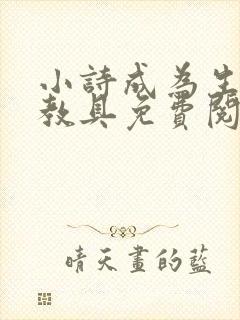 小詩成為生
教具免費閱
晴天畫的藍